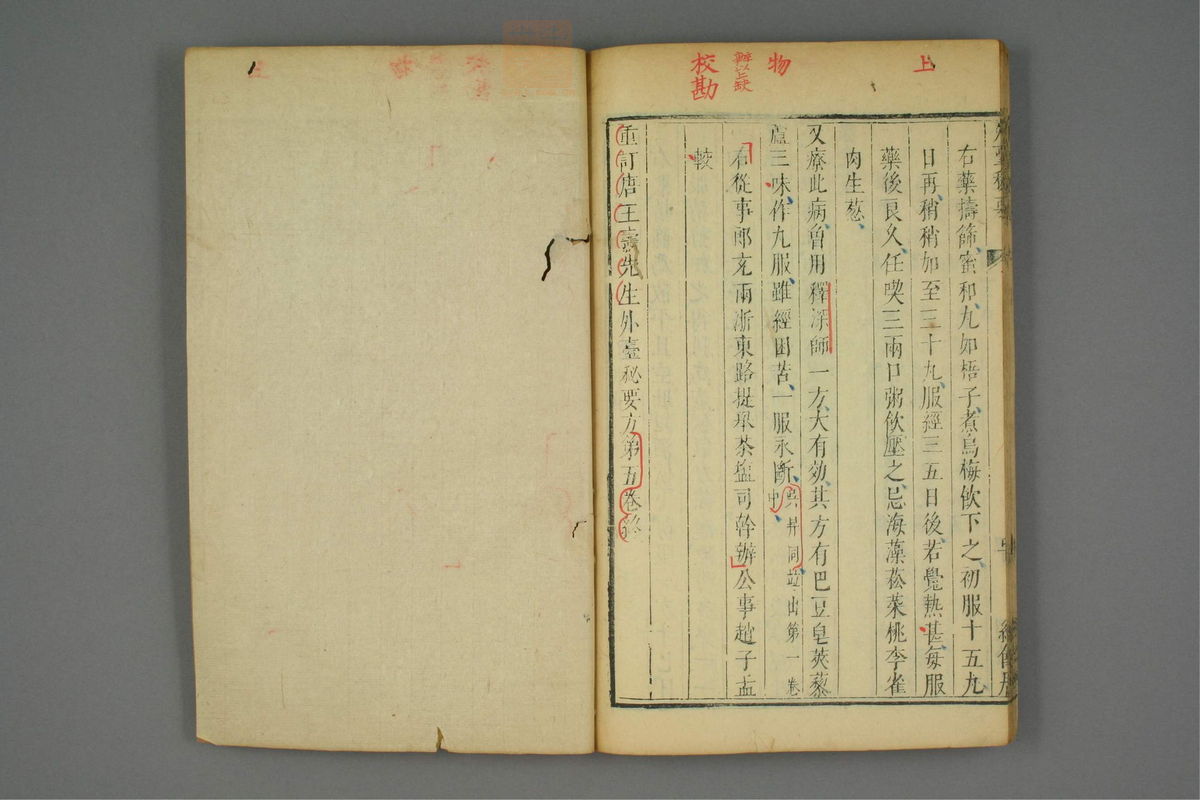 上
物
辨以上缺
校勘
右藥擣篩蜜和丸如梧子煮烏梅飲下之初服十五丸
日再稍稍加至三十丸服經三五日後若覺熱甚每服
藥後良久任喫三兩口粥飲壓之忌海藻菘菜桃李雀
肉生葱
又療此病曾用釋深師一方大有効其方有巴豆皂莢藜
蘆三味作丸服雖經困苦一服永斷吳昇同並出第一卷中
右從事郎充兩浙東路提舉茶盐司幹辦公事趙子孟
較
重訂唐王燾先生外臺秘要方第五卷終